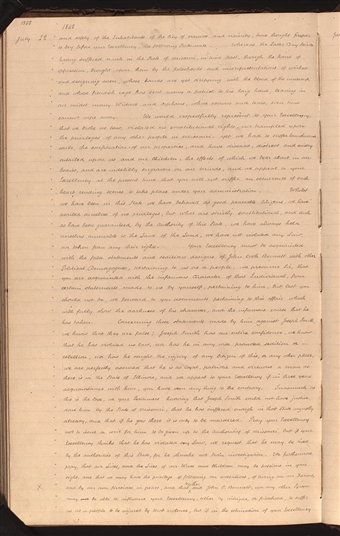 1842
1842
July 22
and safety of the Inhabitants of the City of Nauvoo and vicinity, have thought proper
to lay before your Excellency the following Statement. Whereas the Latter Day Saints
having suffered much in the State of Missouri, in time past, through the hand of
oppression, brought upon them by the falsehoods and misrepresentations of wicked
and designing men, whose hands are yet dripping with the blood of the innocent
and whose fiendish rage has sent many a patriot to his long home, leaving in
our midst many Widows and Orphans, whose sorrows and tears even time
cannot wipe away. We would respectfully represent to your Excellency
that we broke no law, violated no constitutional rights, nor trampled upon
the privileges of any other people in Missouri, yet we had to suffer
with the confiscation of our properties, and have diseases, distress and misery
entailed upon us and our children, the effects of which we bear about in our
bodies, and are indelibly engraven on our minds, and we appeal to your
Excellency at the present time, that you will not suffer an occurrence of such
heart rending scenes to take place under your administration. Whilst
we have been in this State we have behaved as good peaceable Citizens, we have
availed ourselves of no privileges, but what are strictly constitutional, and such
as have been guaranteed by the authority of this State, we have always held
ourselves amenable to the Laws of the Land, we have not violated any Law,
nor taken from any their rights. Your Excellency must be acquainted
with the false statements and seditious designs of John Cook Bennett with other
Political Demagogues, pertaining to us as a people, we presume Sir, that
you are acquainted with the infamous Character of that Individual, from
certain statements made to us by yourself, pertaining to him, but lest you
should not be, we forward to you documents pertaining to this affair which
will fully show the darkness of his character, and the infamous course that he
has taken. Concerning those statements made by him against Joseph Smith
we know that they are false. Joseph Smith has our entire confidence, we know
that he has violated no law, nor has he in any wise promoted sedition or
rebellion, nor has he sought the injury of any Citizen of this, or any other place,
we are perfectly assured that he is as loyal, patriotic and virtuous a man as
there is in the State of Illinois, and we appeal to your Excellency if in three years
acquaintance with him, you have seen any thing to the contrary. Inasmuch as
this is the case, we your Petitioners knowing that Joseph Smith could not have justice
done him by the State of Missouri, that he has suffered enough in that State unjustly
already, and that if he goes there it is only to be murdered. Pray your Excellency
not to issue a writ for him to be given up to the Authorities of Missouri, but if your
Excellency thinks that he has violated any Law, we request that he may be tried
by the authorities of this State, for he shrinks not from investigation. We furthermore
pray, that our Lives, and the Lives of our Wives and Children may be precious in your
sight, and that we may have the privilege of following our avocations, of living on our Farms
and by our own Firesides in peace, and that neither John C. Bennett, nor any other Person
may not be able to influence your Excellency, either by intrigue or falsehood, to suffer
us as a people to be injured by Mob violence, but if in the estimation of your Excellency